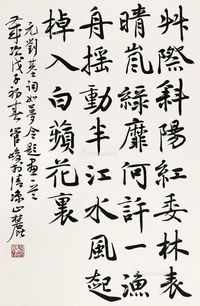 艸際斜陽紅委林表
晴嵐綠靡何許一漁
舟摇動半江水風起
棹入白蘋花裏
元劉基詞如夢令題畫一首
歲次戊子初春